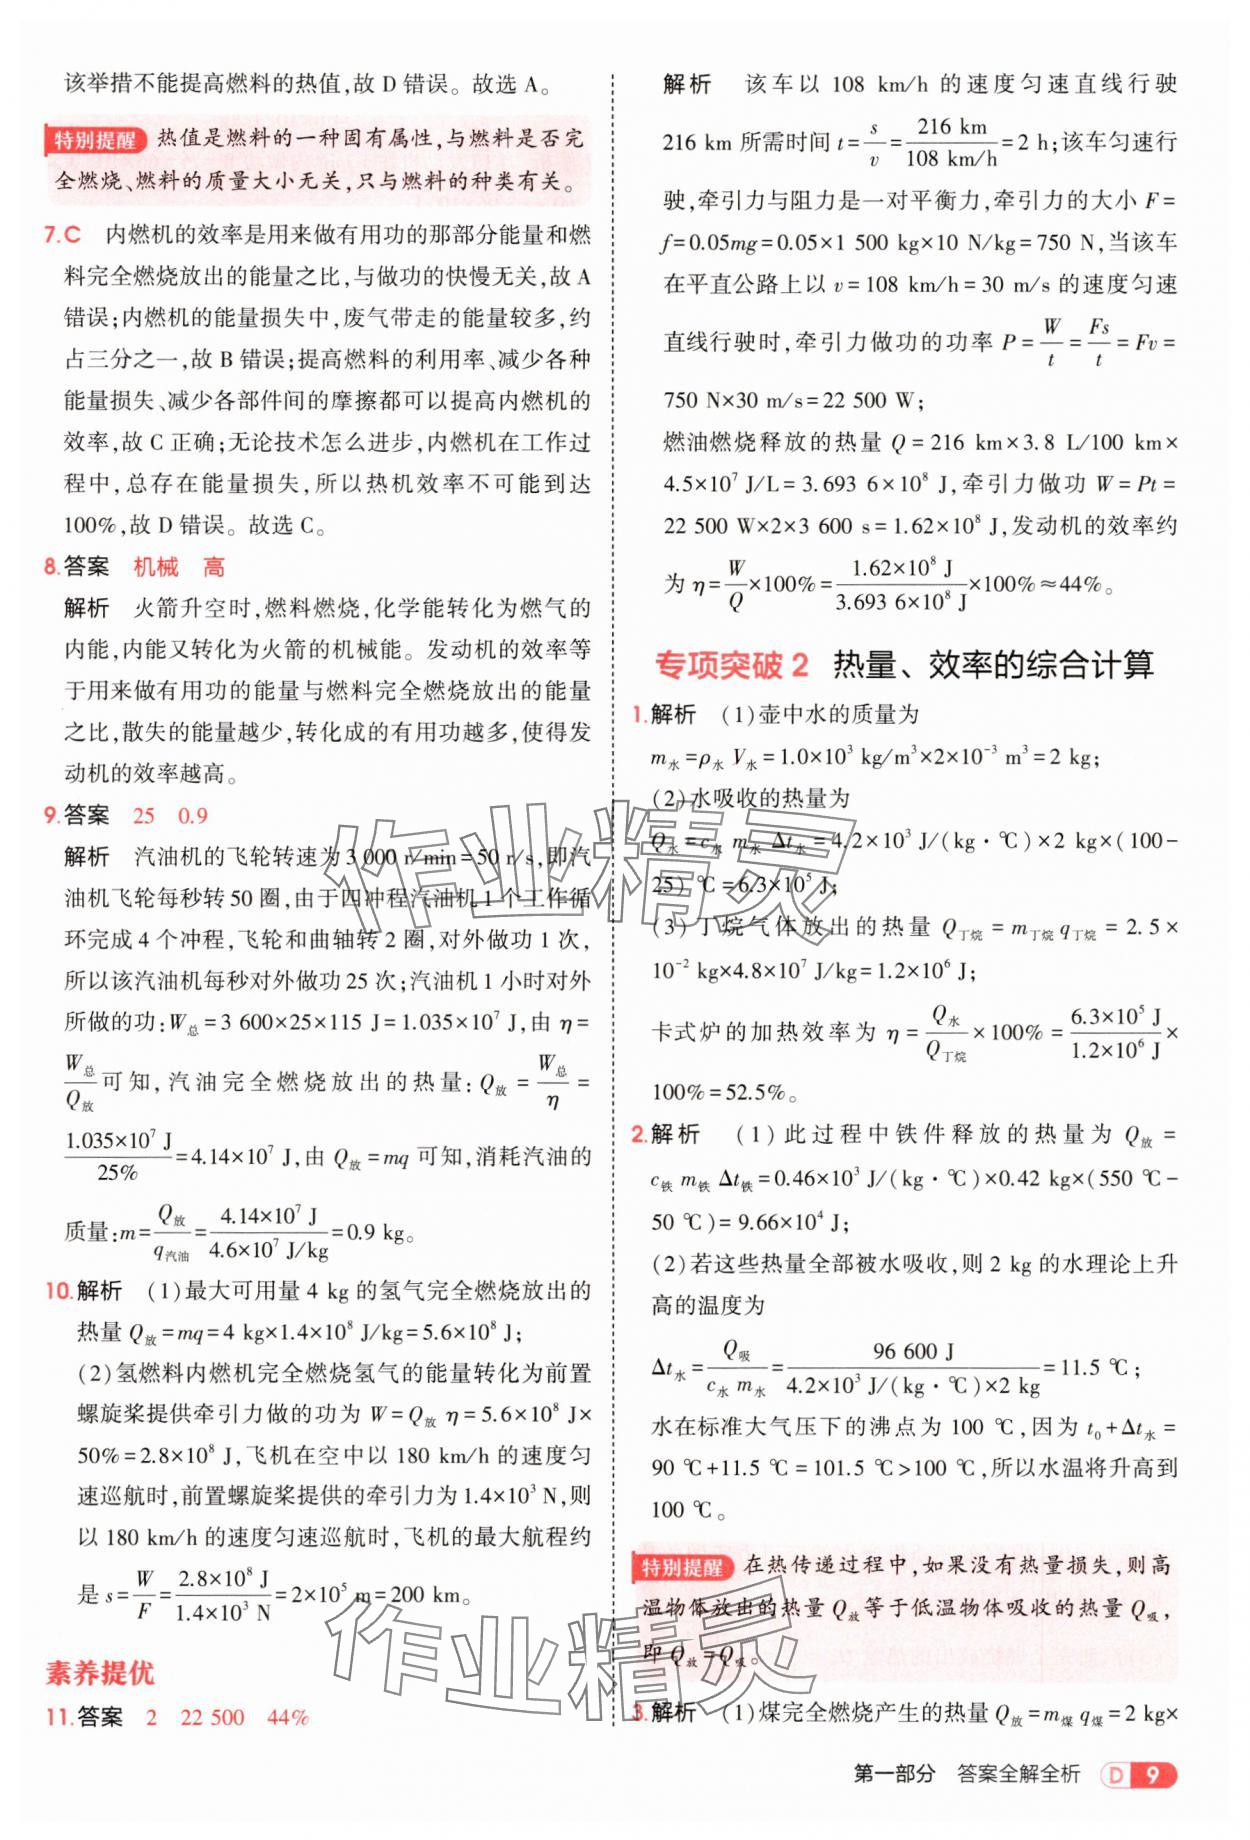 该举措不能提高燃料的热值,故 D 错误。故选 A。
特别提醒 热值是燃料的一种固有属性,与燃料是否完
全燃烧、燃料的质量大小无关,只与燃料的种类有关。
7.C 内燃机的效率是用来做有用功的那部分能量和燃
料完全燃烧放出的能量之比,与做功的快慢无关,故 A
错误;内燃机的能量损失中,废气带走的能量较多,约
占三分之一,故 B 错误;提高燃料的利用率、减少各种
能量损失、减少各部件间的摩擦都可以提高内燃机的
效率,故 C 正确;无论技术怎么进步,内燃机在工作过
程中,总存在能量损失,所以热机效率不可能到达
100%,故 D 错误。故选 C。
8.答案 机械 高
解析 火箭升空时,燃料燃烧,化学能转化为燃气的
内能,内能又转化为火箭的机械能。发动机的效率等
于用来做有用功的能量与燃料完全燃烧放出的能量
之比,散失的能量越少,转化成的有用功越多,使得发
动机的效率越高。
9.答案 25 0.9
解析 汽油机的飞轮转速为 3 000 r/min=50 r/s,即汽
油机飞轮每秒转 50 圈,由于四冲程汽油机 1 个工作循
环完成 4 个冲程,飞轮和曲轴转 2 圈,对外做功 1 次,
所以该汽油机每秒对外做功 25 次;汽油机 1 小时对外
所做的功:W总=3 600×25×115 J=1.035×10⁷ J,由 η=
W总/Q放 可知,汽油完全燃烧放出的热量:Q放=W总/η=
1.035×10⁷ J/25%=4.14×10⁷ J,由 Q放=mq 可知,消耗汽油的
质量:m=Q放/q汽油=4.14×10⁷ J/4.6×10⁷ J/kg=0.9 kg。
10.解析 (1)最大可用量 4 kg 的氢气完全燃烧放出的
热量 Q放=mq=4 kg×1.4×10⁸ J/kg=5.6×10⁸ J;
(2)氢燃料内燃机完全燃烧氢气的能量转化为前置
螺旋桨提供牵引力做的功为 W=Q放 η=5.6×10⁸ J×
50%=2.8×10⁸ J,飞机在空中以 180 km/h 的速度匀
速巡航时,前置螺旋桨提供的牵引力为 1.4×10³ N,则
以 180 km/h 的速度匀速巡航时,飞机的最大航程约
是 s=W/F=2.8×10⁸ J/1.4×10³ N=2×10⁵ m=200 km。
素养提优
11.答案 2 22 500 44%
解析 该车以 108 km/h 的速度匀速直线行驶
216 km 所需时间 t=s/v=216 km/108 km/h=2 h;该车匀速行
驶,牵引力与阻力是一对平衡力,牵引力的大小 F=
f=0.05mg=0.05×1 500 kg×10 N/kg=750 N,当该车
在平直公路上以 v=108 km/h=30 m/s 的速度匀速
直线行驶时,牵引力做功的功率 P=W/t=Fs/t=Fv=
750 N×30 m/s=22 500 W;
燃油燃烧释放的热量 Q=216 km×3.8 L/100 km×
4.5×10⁷ J/L=3.693 6×10⁸ J,牵引力做功 W=Pt=
22 500 W×2×3 600 s=1.62×10⁸ J,发动机的效率约
为 η=W/Q×100%=1.62×10⁸ J/3.693 6×10⁸ J×100%≈44%。
专项突破 2 热量、效率的综合计算
1.解析 (1)壶中水的质量为
m水=ρ水 V水=1.0×10³ kg/m³×2×10⁻³ m³=2 kg;
(2)水吸收的热量为
Q水=c水 m水 Δt水=4.2×10³ J/(kg·℃)×2 kg×(100-
25) ℃=6.3×10⁵ J;
(3)丁烷气体放出的热量 Q丁烷=m丁烷 q丁烷=2.5×
10⁻² kg×4.8×10⁷ J/kg=1.2×10⁶ J;
卡式炉的加热效率为 η=Q水/Q丁烷×100%=6.3×10⁵ J/1.2×10⁶ J×
100%=52.5%。
2.解析 (1)此过程中铁件释放的热量为 Q放=
c铁 m铁 Δt铁=0.46×10³ J/(kg·℃)×0.42 kg×(550 ℃-
50 ℃)=9.66×10⁴ J;
(2)若这些热量全部被水吸收,则 2 kg 的水理论上升
高的温度为
Δt水=Q吸/c水 m水=96 600 J/4.2×10³ J/(kg·℃)×2 kg=11.5 ℃;
水在标准大气压下的沸点为 100 ℃,因为 t₀+Δt水=
90 ℃+11.5 ℃=101.5 ℃>100 ℃,所以水温将升高到
100 ℃。
特别提醒 在热传递过程中,如果没有热量损失,则高
温物体放出的热量 Q放等于低温物体吸收的热量 Q吸,
即 Q放=Q吸。
3.解析 (1)煤完全燃烧产生的热量 Q放=m煤 q煤=2 kg×
第一部分 答案全解全析 D 9
作业精灵
作业精灵